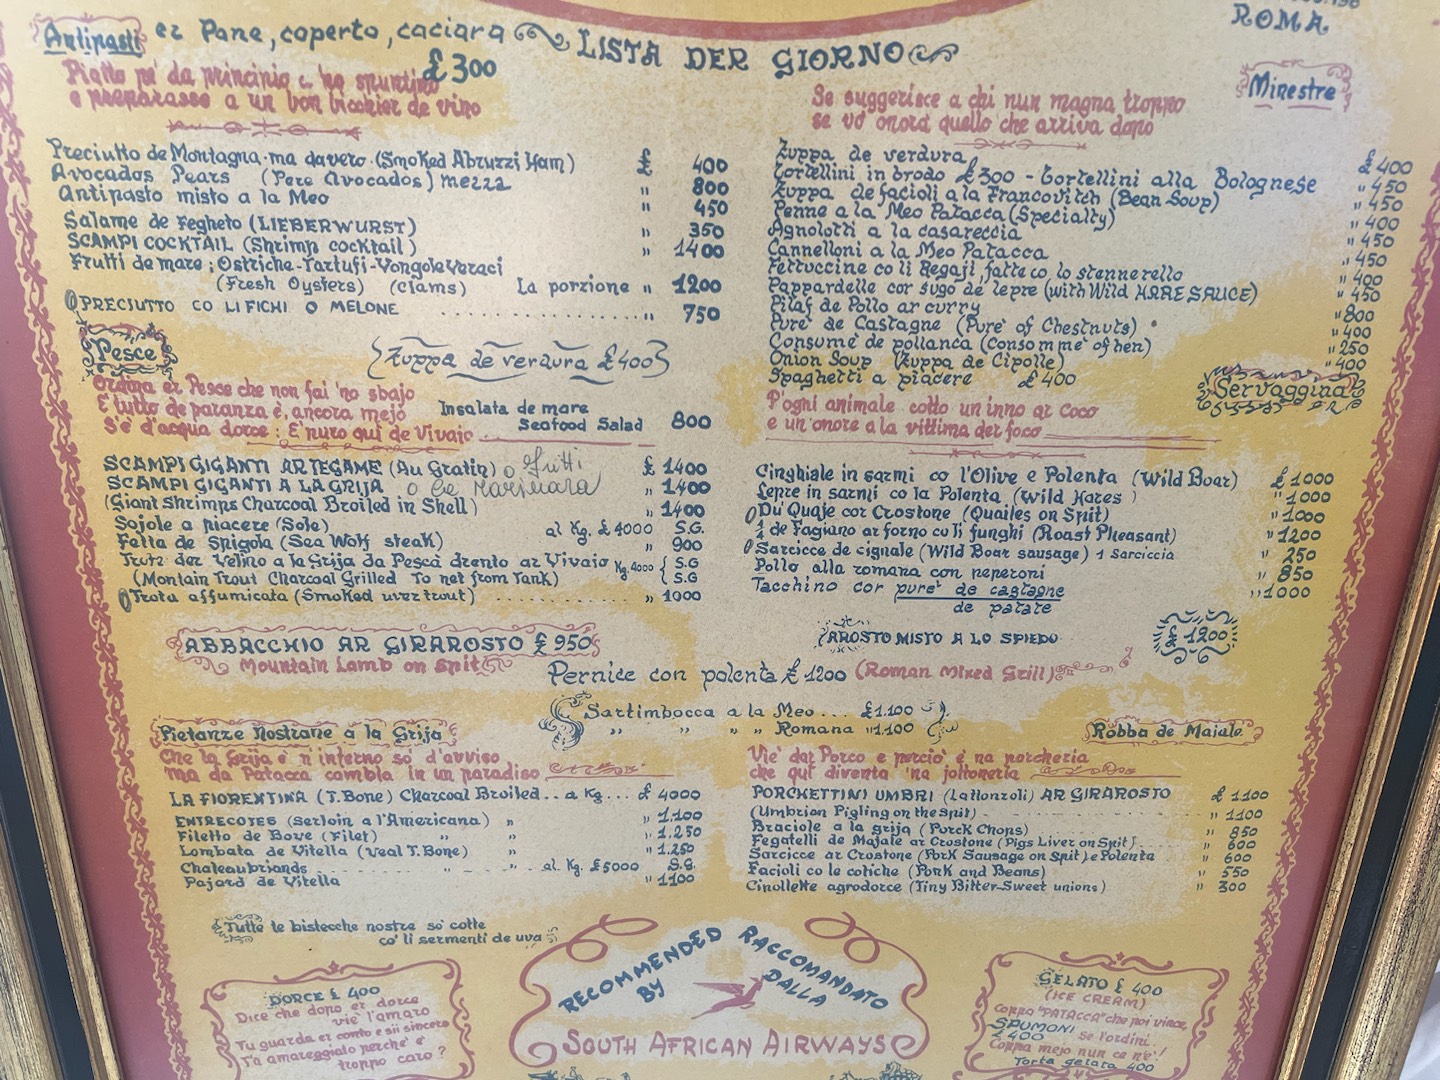 ROMA
Antipasti er Pane, coperto, caciara £ 300
LISTA DER GIORNO
Piatto pe' da principio e 'no spuntino
e preparasse a un bon bicchier de vino
Preciutto de Montagna-ma davero (Smoked Abruzzi Ham) £ 400
Avocados Pears (Pere Avocados) mezza " 800
Antipasto misto a la Meo " 450
Salame de Fegheto (LIEBERWURST) " 350
SCAMPI COCKTAIL (Shrimp cocktail) " 1400
Frutti de mare; Ostriche-Tartufi-Vongole Veraci
(Fresh Oysters) (Clams) La porzione " 1200
PRECIUTTO CO LI FICHI O MELONE " 750
Pesce
Zuppa de verdura £ 400
Ordina er Pesce che non fai 'no sbajo
E' tutto de paranza e, ancora mejo
S'è d'acqua dorce: E' puro qui de Vivaio
Insalata de mare
Seafood Salad 800
SCAMPI GIGANTI AR TEGAME (Au Gratin) o fritti £ 1400
SCAMPI GIGANTI A LA GRIJA o la Marinara " 1400
(Giant Shrimps Charcoal Broiled in Shell) " 1400
Sojole a piacere (Sole) al Kg. £ 4000 S.G.
Fetta de Spigola (Sea Wolf steak) " 900
Trote der Velino a la Grija da Pescà drento ar Vivaio Kg. 4000 { S.G
(Montain Trout Charcoal Grilled To net from Tank) S.G
Trota affumicata (Smoked wertrout) " 1000
ABBACCHIO AR GIRAROSTO £ 950
Mountain Lamb on Spit
Minestre
Se suggerisce a chi nun magna troppo
se vo' onorà quello che arriva dopo
Zuppa de verdura £ 400
Tortellini in brodo £ 300 - Tortellini alla Bolognese " 450
Zuppa de facioli a la Francovitch (Bean Soup) " 450
Penne a la Meo Patacca (Specialty) " 400
Agnolotti a la casareccia " 450
Cannelloni a la Meo Patacca
Fettuccine co li Regaji, fatte co lo stennerello " 400
Pappardelle cor sugo de lepre (with Wild HARE SAUCE) " 450
Pilaf de Pollo ar curry " 800
Purè de Castagne (Purè of Chestnuts) " 400
Consumè de pollanca (Consommè of hen) " 250
Onion Soup (Zuppa de Cipolle) " 400
Spaghetti a piacere £ 400
Servaggina
P'ogni animale cotto un inno ar Coco
e un onore a la vittima der foco
Cinghiale in sarmi co l'Olive e Polenta (Wild Boar) £ 1000
Lepre in sarmi co la Polenta (Wild Hares) " 1000
Du' Quaje cor Crostone (Quailes on Spit) " 1000
½ de Fagiano ar forno cu li funghi (Roast Pheasant) " 1200
Sarcicce de cignale (Wild Boar sausage) 1 Sarciccia " 250
Pollo alla romana con peperoni " 850
Tacchino cor purè de castagne " 1000
de patate
AROSTO MISTO A LO SPIEDO £ 1200
Pernice con polenta £ 1200 (Roman Mixed Grill)
Sartimbocca a la Meo... £ 1.100
" " " " Romana " 1.100
Pietanze Nostrane a la Grija
Che la Grija è 'n inferno so' d'avviso
ma da Patacca cambia in un paradiso
LA FIORENTINA (T. Bone) Charcoal Broiled.. a Kg... £ 4000
ENTRECOTES (serloin a l'Americana) " " 1.100
Filetto de Bove (Filet) " " " 1.250
Lombata de Vitella (Veal T. Bone) " " 1.250
Chateaubriands " al Kg. £ 5000 S.G.
Pajard de Vitella " 1100
Tutte le bistecche nostre so' cotte
co' li sermenti de uva
Robba de Maiale
Vie' dar Porco e perciò è na porcheria
che qui diventa 'na jottoneria
PORCHETTINI UMBRI (Lattonzoli) AR GIRAROSTO £ 1100
(Umbrian Pigling on the Spit) " 1100
Braciole a la grija (Porck Chops) " 850
Fegatelli de Majale ar Crostone (Pigs Liver on Spit) " 600
Sarcicce ar Crostone (Pork Sausage on Spit) e Polenta " 600
Facioli co le cotiche (Pork and Beans) " 550
Cipollette agrodorce (Tiny Bitter-Sweet unions) " 300
DORCE £ 400
Dice che dopo er dorce
viè l'amaro
Tu guarda er conto e sii sincero
T'à amareggiato perchè è
troppo caro?
RECOMMENDED BY
RACCOMANDATO DALLA
SOUTH AFRICAN AIRWAYS
GELATO £ 400
(ICE CREAM)
Coppa "PATACCA" che poi vince,
SPUMONI
£ 400 se l'ordini
Coppa mejo nun ce n'è!
Torta gelata 400